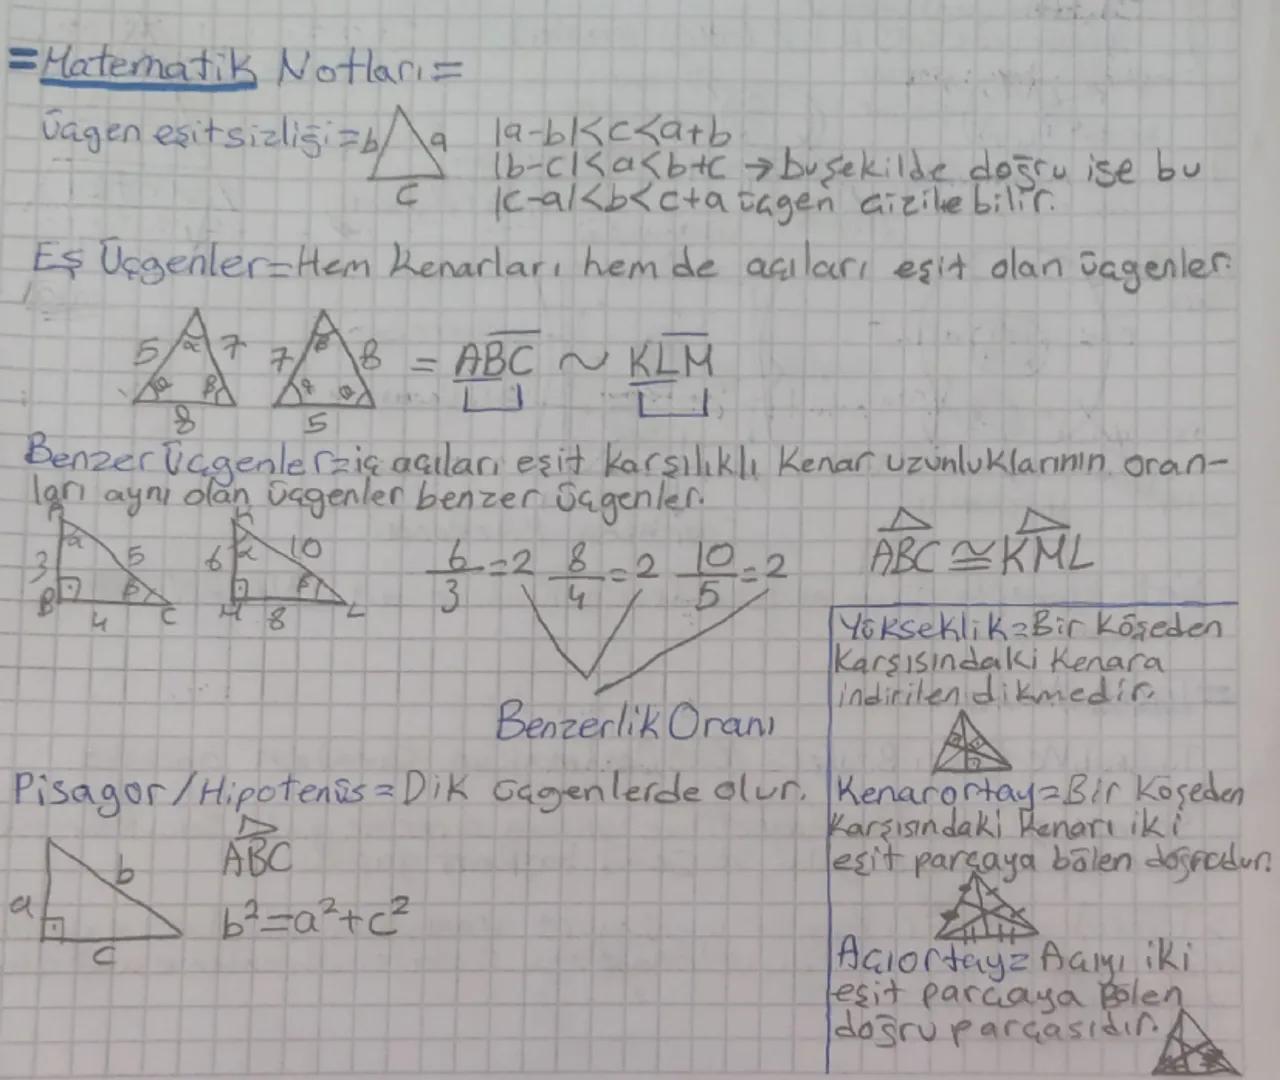 =Matematik Notları=
Üçgen eşitsizliği= b a c |a-b|<c<a+b
|b-c|<a<b+c → bu şekilde doğru ise bu
|c-a|<b<c+a üçgen çizilebilir.
Eş Üçgenler=Hem kenarları hem de açıları eşit olan üçgenler.
5 7 8 7 8 5 = ABC ~ KLM
Benzer Üçgenler=iç açıları eşit karşılıklı kenar uzunluklarının oran-
ları aynı olan üçgenler benzer üçgenler.
A α 3 5 B β 4 C
K α 6 10 M β 8 L
6/3=2 8/4=2 10/5=2
ABC ≅ KML
Benzerlik Oranı
Pisagor/Hipotenüs=Dik üçgenlerde olur.
a b c
ABC
b²=a²+c²
Yükseklik=Bir köşeden
karşısındaki kenara
indirilen dikmedir.
Kenarortay=Bir köşeden
karşısındaki kenarı iki
eşit parçaya bölen doğrudur.
Açıortay= Açıyı iki
eşit parçaya bölen
doğru parçasıdır.